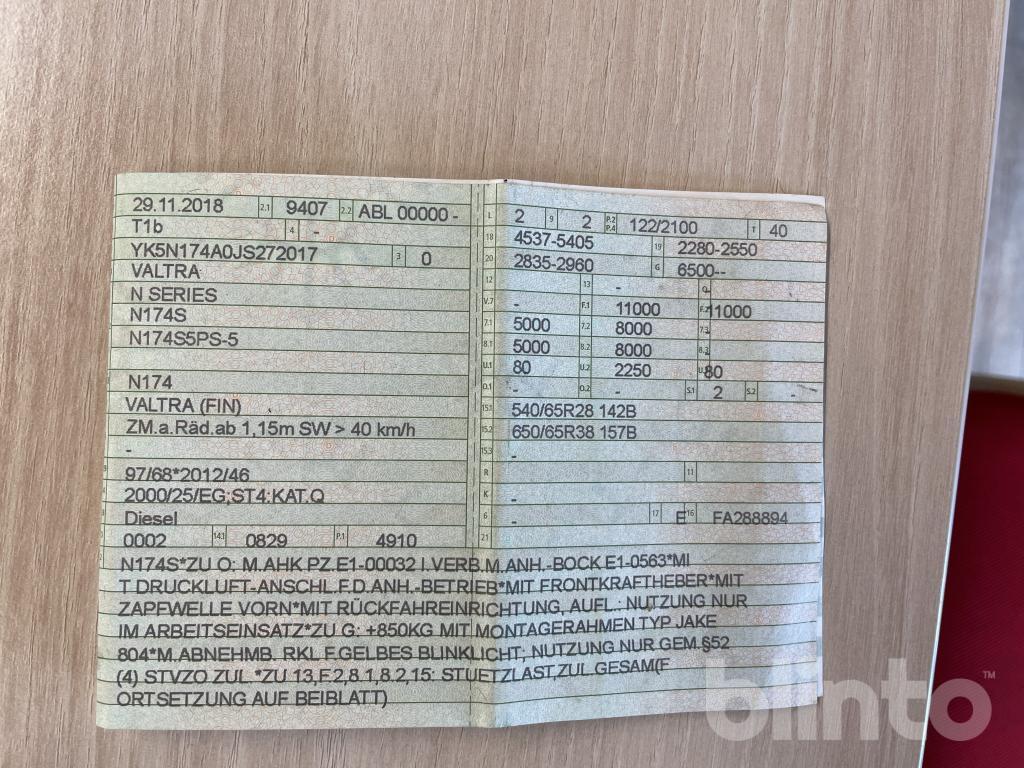 29.11.2018 2.1 9407 2.2 ABL 00000 -
T1b 4 -
YK5N174A0JS272017 3 0
VALTRA
N SERIES
N174S
N174S5PS-5
N174
VALTRA (FIN)
ZM.a.Räd.ab 1,15m SW > 40 km/h
-
97/68*2012/46
2000/25/EG;ST4:KAT.Q
Diesel
0002 14.1 0829 P.1 4910
L 2 9 2 P.2 P.4 122/2100 T 40
18 4537-5405 19 2280-2550
20 2835-2960 G 6500--
12 - 13 - Q -
V.7 - F.1 11000 F.2 11000
7.1 5000 7.2 8000 7.3
8.1 5000 8.2 8000 8.3
U.1 80 U.2 2250 U.3 80
O.1 - O.2 - S.1 2 S.2 -
15.1 540/65R28 142B
15.2 650/65R38 157B
15.3 -
R 11
K -
6 - 17 E 16 FA288894
21
N174S*ZU O: M.AHK PZ.E1-00032 I.VERB.M.ANH.-BOCK E1-0563*MI
T DRUCKLUFT-ANSCHL.F.D.ANH.-BETRIEB*MIT FRONTKRAFTHEBER*MIT
ZAPFWELLE VORN*MIT RÜCKFAHREINRICHTUNG, AUFL.: NUTZUNG NUR
IM ARBEITSEINSATZ*ZU G: +850KG MIT MONTAGERAHMEN TYP JAKE
804*M.ABNEHMB. RKL F.GELBES BLINKLICHT; NUTZUNG NUR GEM.§52
(4) STVZO ZUL.*ZU 13,F.2,8.1,8.2,15: STUETZLAST,ZUL.GESAM(F
ORTSETZUNG AUF BEIBLATT)
blinto™